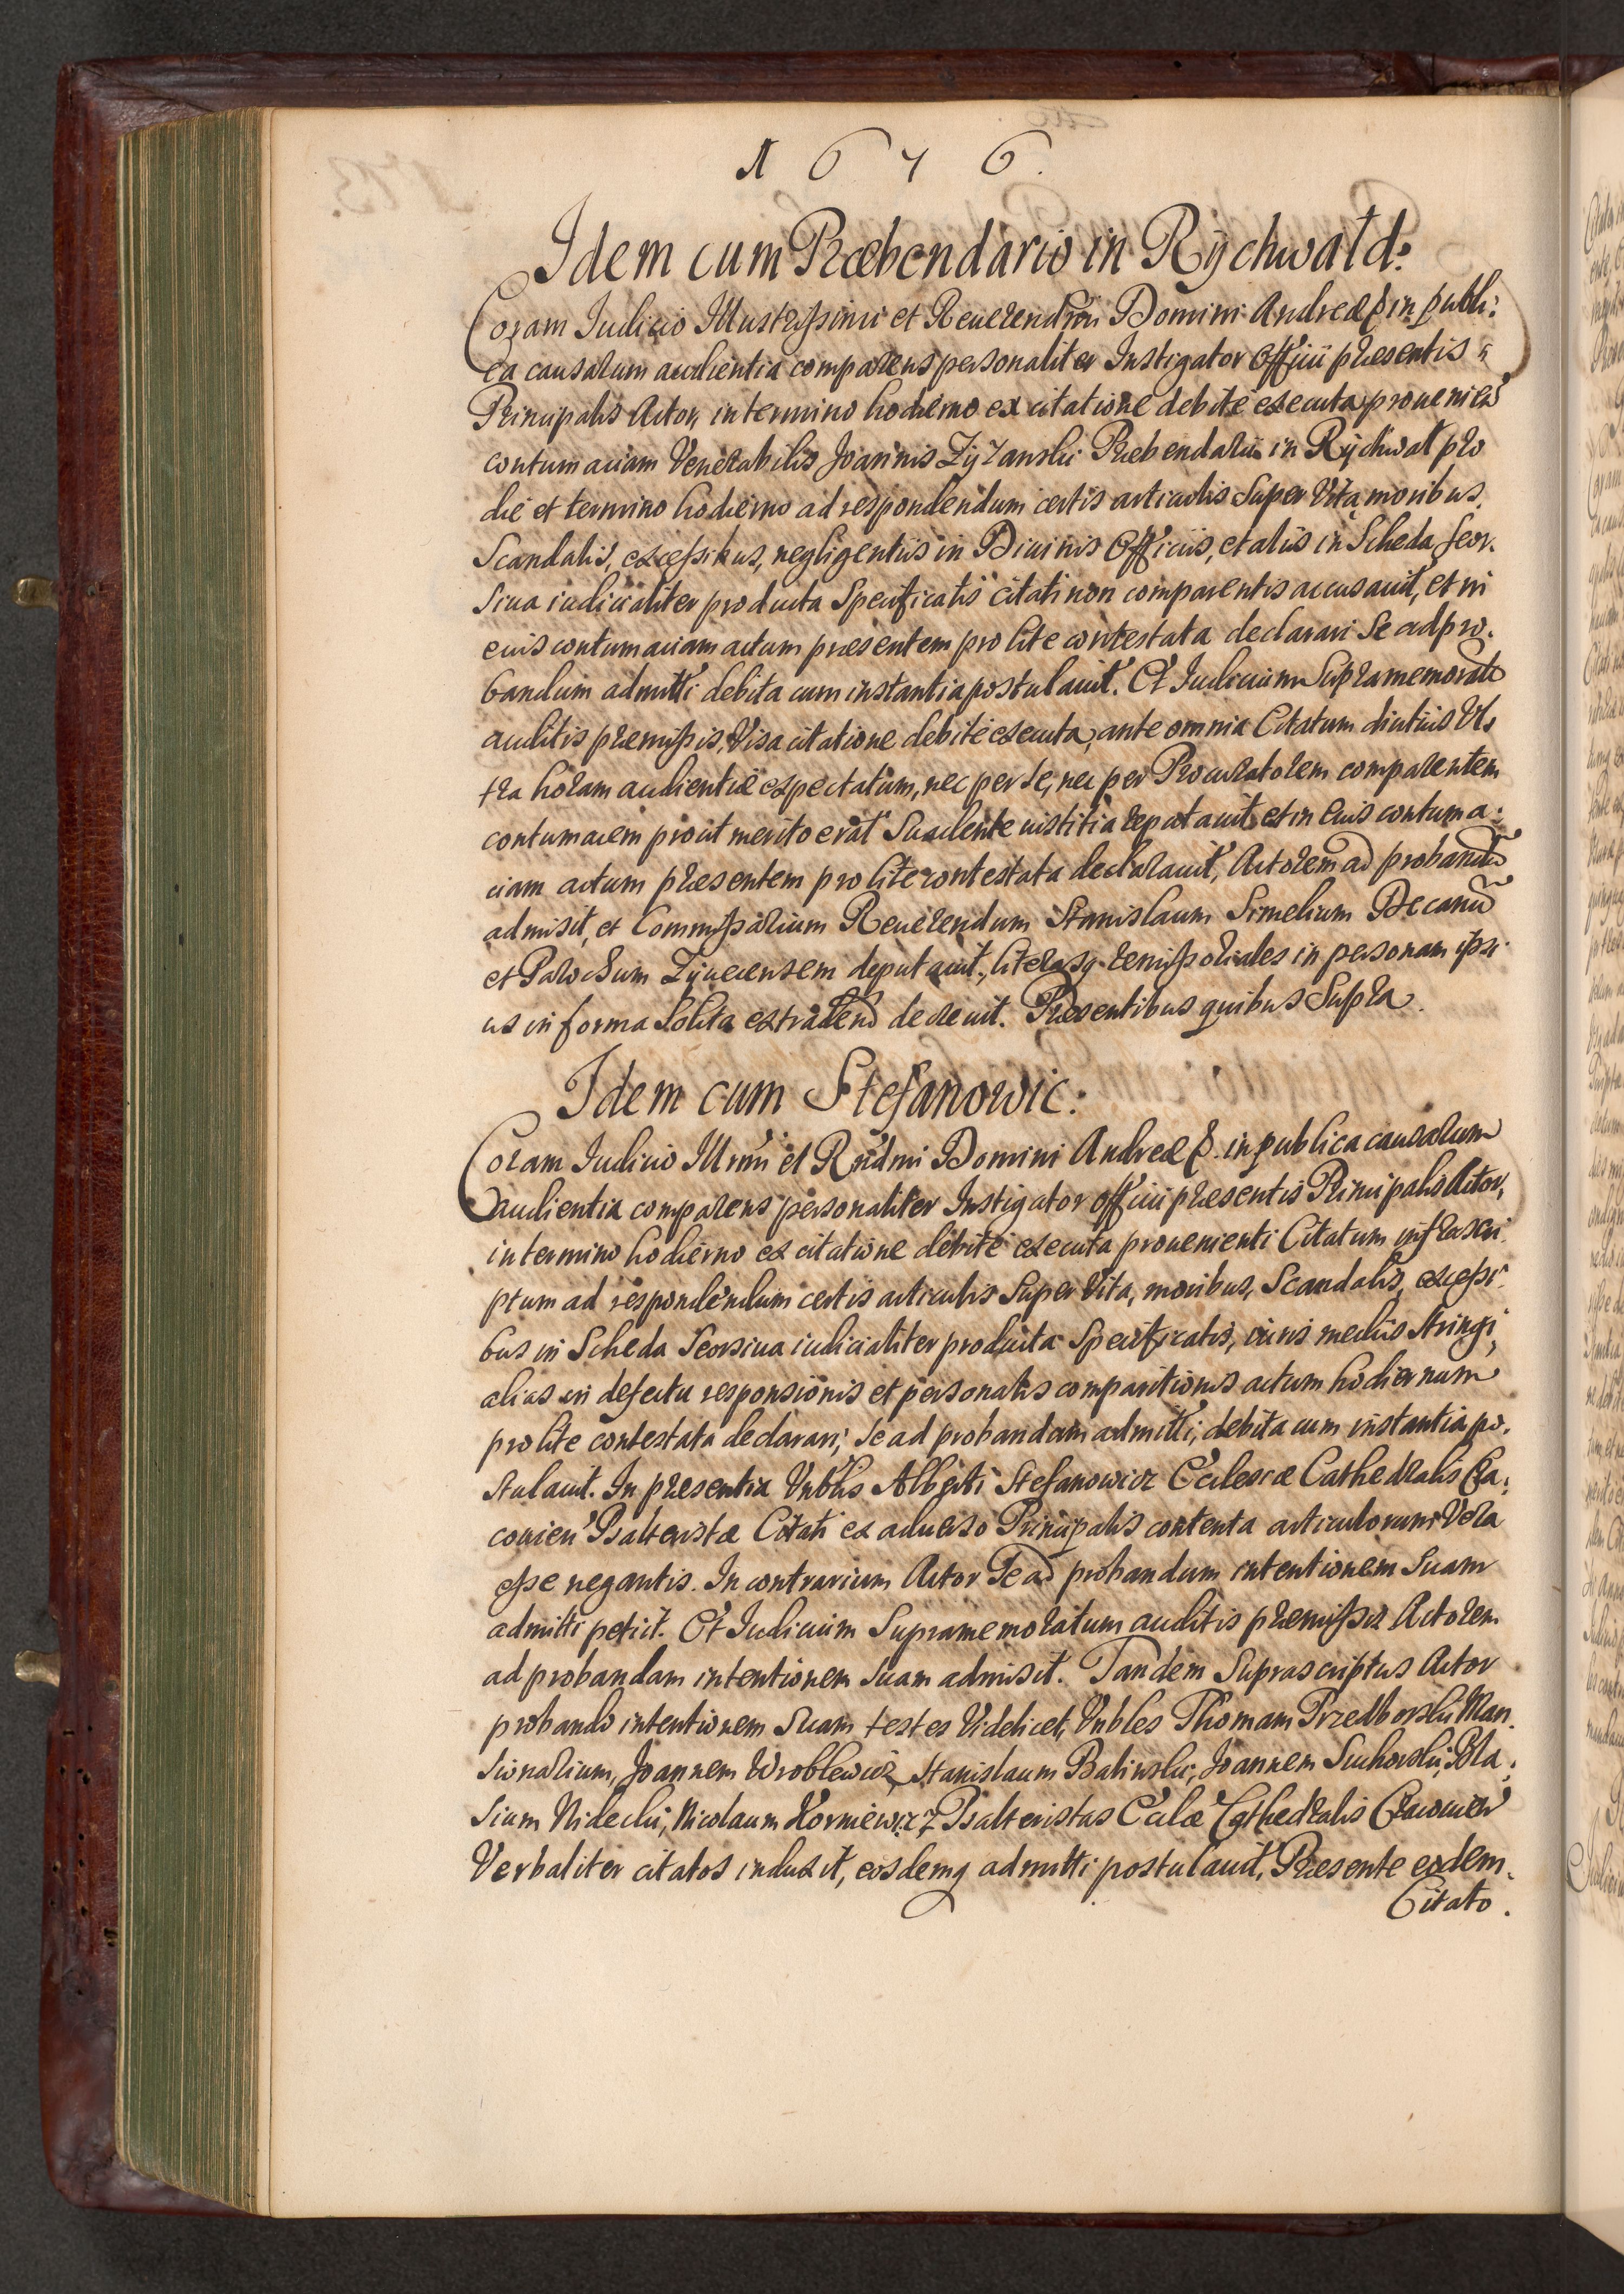 1 6 4 6.
Idem cum Præbendario in Rychwald:
Coram Iudicio Illustrissimi et Reuerendmi Domini Andreæ in publi:
ca causarum audientia comparens personaliter Instigator Officii præsentis
Principalis Actor, in termino hodierno ex citatione debite executa prouenien
contumaciam Venerabilis Joannis Præbendarii in Rychwat pro
die et termino hodierno ad respondendum certis articulis super Vita moribus,
Scandalis, excessibus, negligentiis in Diuinis Officiis, et aliis in Scheda seor.
siua iudicialiter producta Specificatis citati non comparentis accusauit, et in
euis contumaciam actum præsentem pro lite contestata declarari se ad pro.
bandum admitti debita cum instantia postulauit. Et Iudicium Supramemorat
auditis præmissis, Visa citatione debite executa, ante omnia Citatum diutius Vl,
tra horam audientiæ expectatum, nec per se, nec per Procuratorem comparentem
contumacem prout merito erat Suadente iustitia reputauit et in euis contuma:
ciam actum præsentem pro lite contestata declarauit, Actorem ad probandū
admisit, et Commissarium Reuerendum Stanislaum Simelium Decanū
et Parochum Zyuecensem deputauit, literasq remissoriales in personam ipsi
us in forma solita extradend decreuit. Præsentibus quibus Supra.
Idem cum Stefanowic:
Coram Iudicio Illrmi et Rndmi Domini Andreæ in publica causarum
audientia comparens personaliter Instigator officii præsentis Principalis Actor,
in termino hodierno ex citatione debite executa prouenienti Citatum infrascri.
ptum ad respondendum certis articulis super Vita, moribus, Scandalis, excessi
bus in Scheda Seorsiua iudicialiter producta Specificatis, iuris mediis stringi,
alias in defectu responsionis et personalis comparitionis actum hodiernum
pro lite contestata declarari, se ad probandum admitti, debita cum instantia po.
stulauit. In præsentia Vnblis Alberti Stefanowicz Ecclesiæ Cathedralis Cra:
couien Psalteristæ Citati ex aduerso Principalis contenta articulorum Vera
esse negantis. In contrarium Actor Se ad probandum intentionem suam
admitti petiit. Et Iudicium Supramemoratum auditis præmissis Actorem
ad probandam intentionem suam admisit. Tandem Suprascriptus Actor
probando intentionem suam testes Videlicet, Vnbles Thomam Przedborski Man.
sionarium, Joannem Wroblewicz, Stanislaum Balinski, Joannem Suchorski, Bla:
sium Nidecki, Nicolaum Korniewicz Psalteristas Eccłæ Cathedralis Cracouien
Verbaliter citatos induxit, eosdemq admitti postulauit, Præsente eodem
Citato.